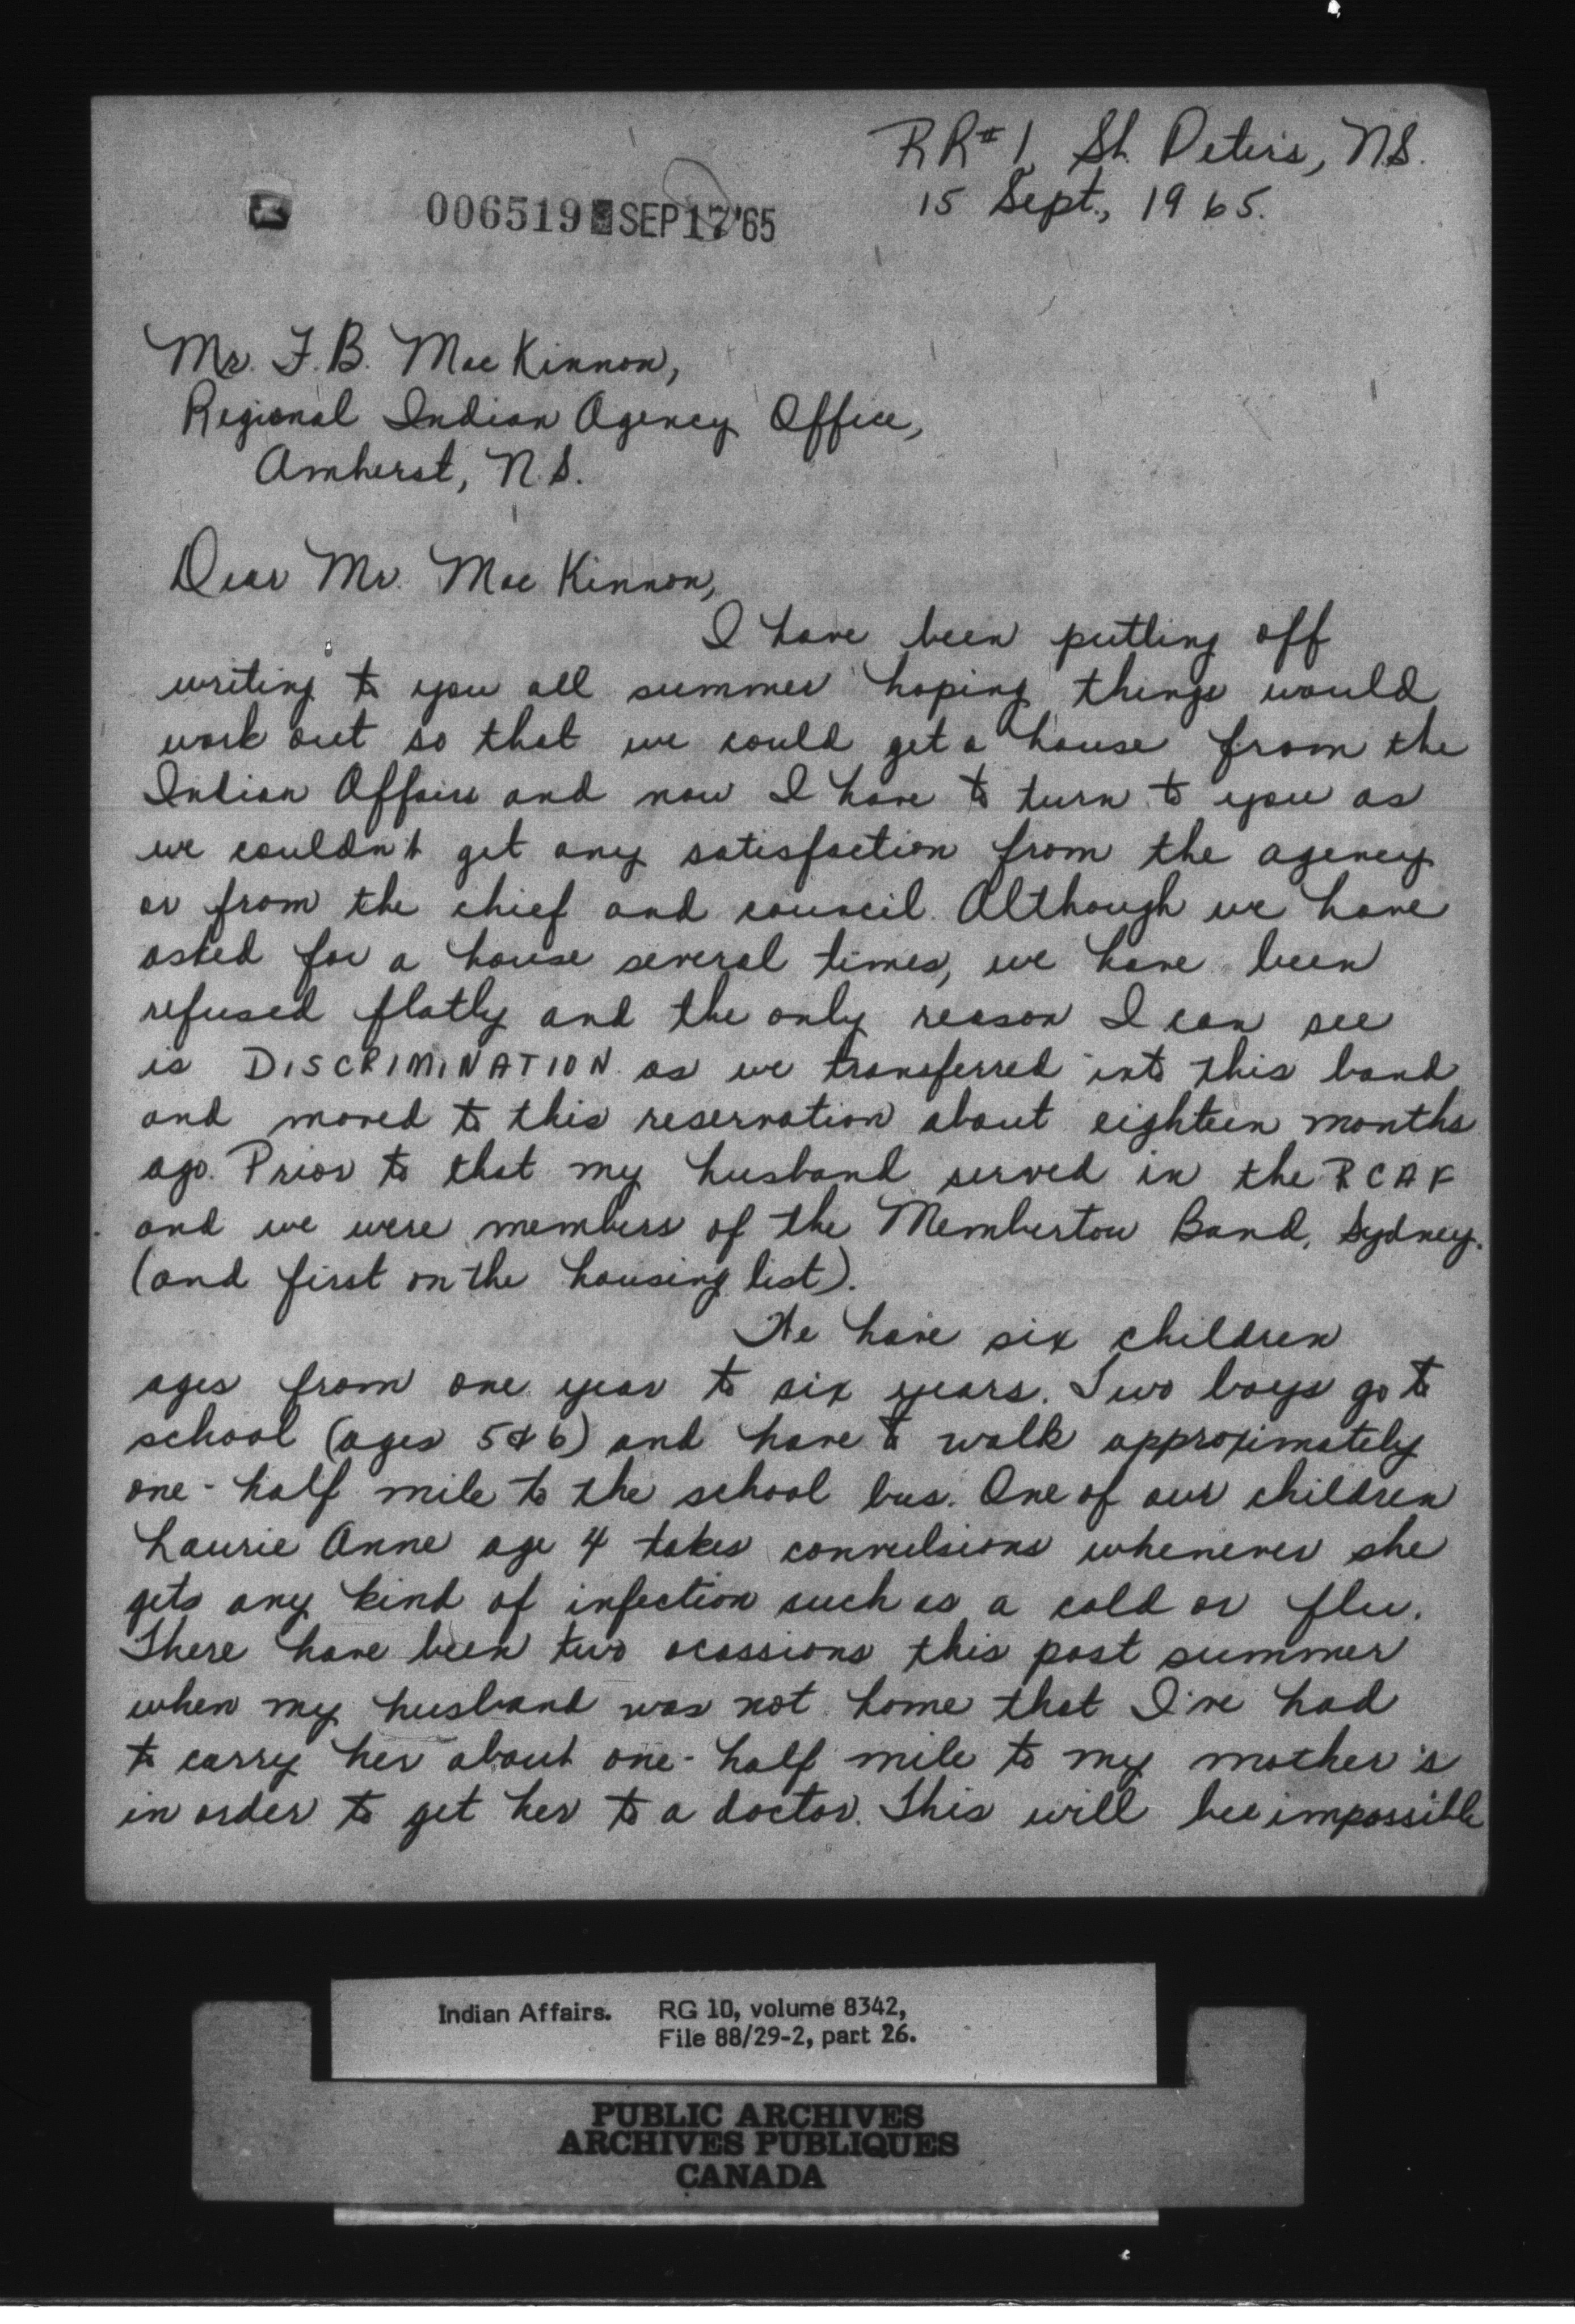 RR#1, St. Peter's, N.S.
15 Sept., 1965.
006519 SEP 17 '65
Mr. F.B. MacKinnon,
Regional Indian Agency Office,
Amherst, N.S.
Dear Mr. MacKinnon,
I have been putting off
writing to you all summer hoping things would
work out so that we could get a house from the
Indian Affairs and now I have to turn to you as
we couldn't get any satisfaction from the agency
or from the chief and council. Although we have
asked for a house several times, we have been
refused flatly and the only reason I can see
is DISCRIMINATION as we transferred into this band
and moved to this reservation about eighteen months
ago. Prior to that my husband served in the RCAF
and we were members of the Membertou Band, Sydney.
(and first on the housing list).
We have six children
ages from one year to six years. Two boys go to
school (ages 5 & 6) and have to walk approximately
one-half mile to the school bus. One of our children
Laurie Anne age 4 takes convulsions whenever she
gets any kind of infection such as a cold or flu.
There have been two ocassions this past summer
when my husband was not home that I've had
to carry her about one-half mile to my mother's
in order to get her to a doctor. This will be impossible
Indian Affairs. RG 10, volume 8342,
File 88/29-2, part 26.
PUBLIC ARCHIVES
ARCHIVES PUBLIQUES
CANADA